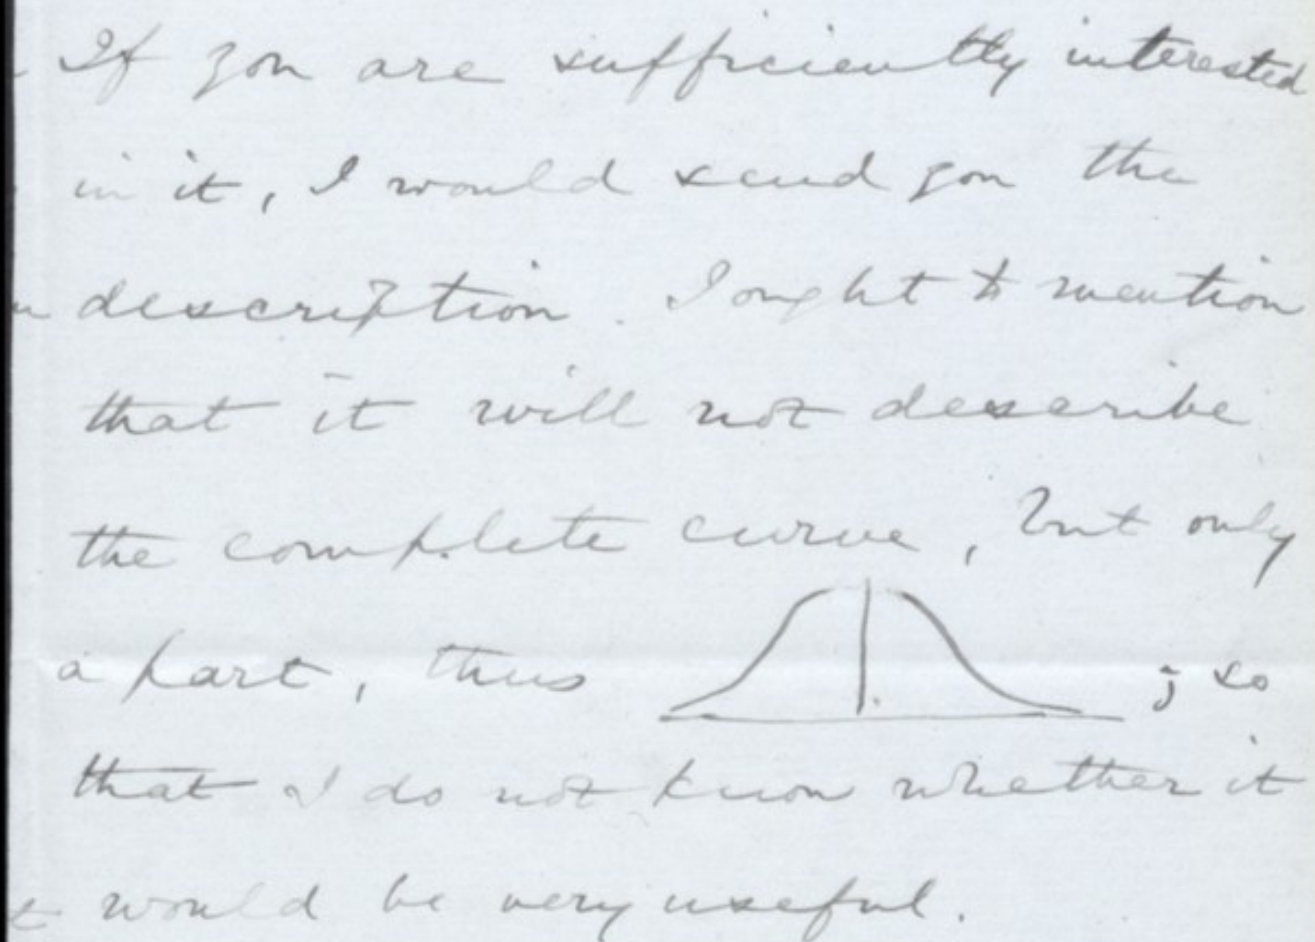 If you are sufficiently interested
in it, I would send you the
description. I ought to mention
that it will not describe
the complete curve, but only
a part, thus ; so
that I do not know whether it
would be very useful.